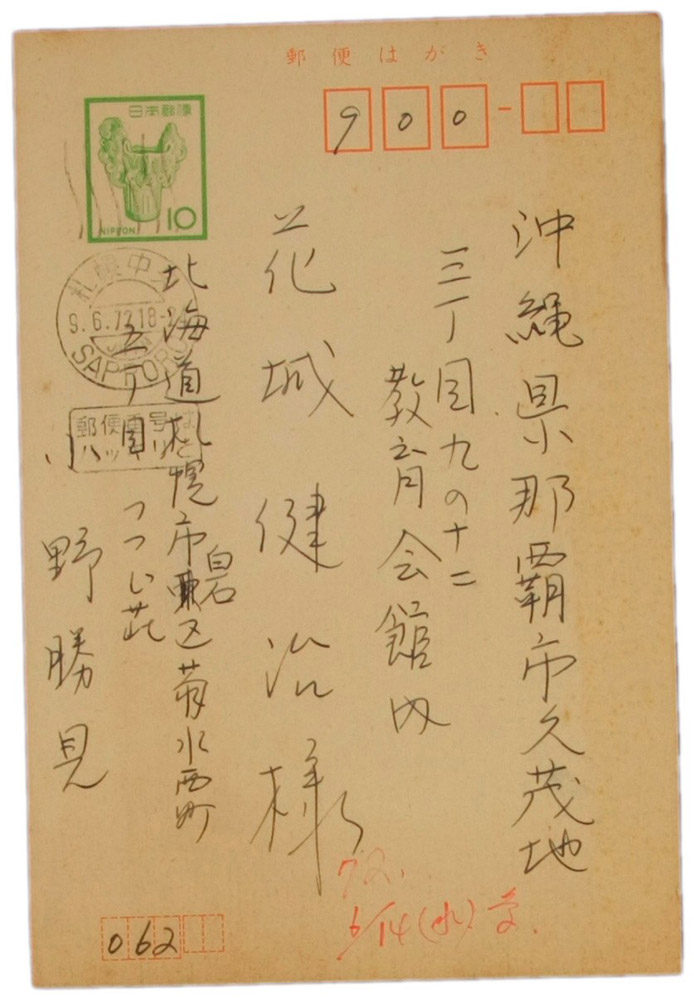 郵便はがき
900
日本郵便
10
NIPPON
沖縄県那覇市久茂地
三丁目九の十二
教育会館内
花城健治様
札幌中央
9.6.72 18-
SAPPORO
郵便番号は
ハッキリ
北海道札幌市白石区菊水西町
五丁目 つつじ荘
小野勝見
72.
6/14(水)
062